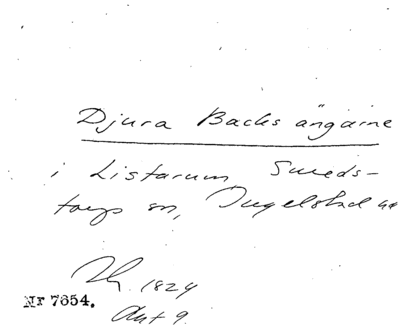 Djura Backs ängarne
i Listarum Smeds-
torps sn, Ingelstad hd
1824
Nr 7654.
Akt 9